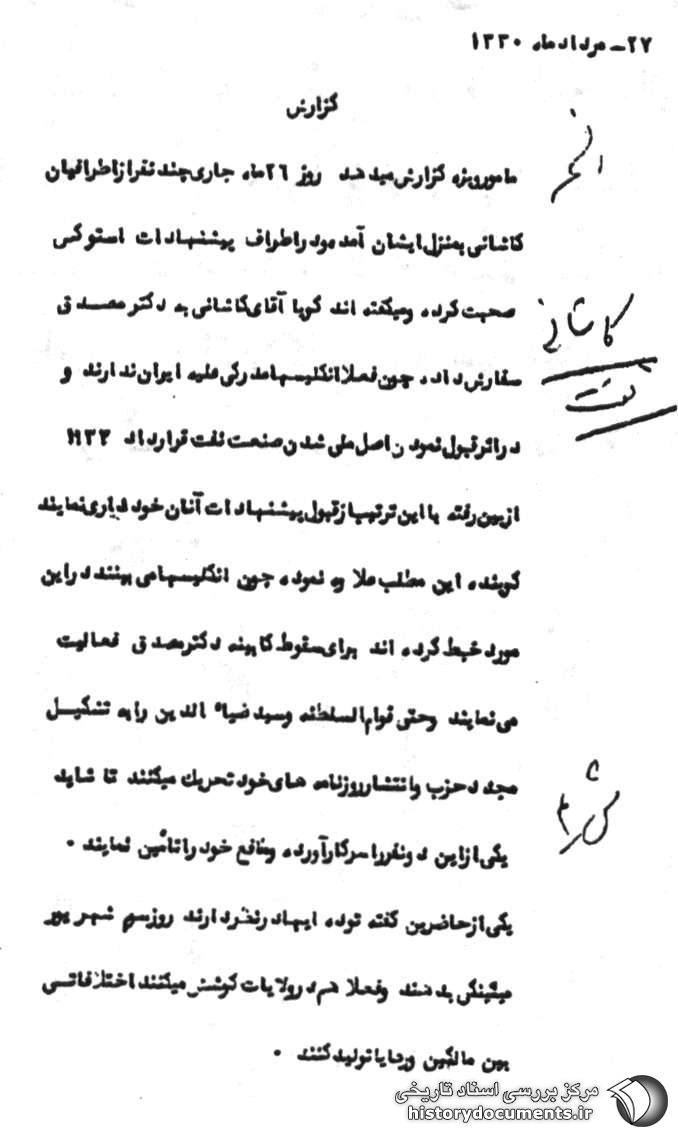 ۲۷ـ مرداد ماه ۱۳۳۰
گزارش
مامور ویژه گزارش میدهد روز ۲۶ ماه جاری چند نفر از اطرافیان
کاشانی بمنزل ایشان آمده و در اطراف پیشنهادات استوکس
صحبت کرده و میگفته اند گویا آقای کاشانی به دکتر مصدق
سفارش داده چون فعلا انگلیسیها مدرکی علیه ایران ندارند و
در اثر قبول نمودن اصل ملی شدن صنعت نفت قرارداد ۱۹۳۳
از بین رفته با این ترتیب از قبول پیشنهادات آنان خودداری نمایند
گوینده این مطلب علاوه نموده چون انگلیسیها می بینند در این
مورد خبط کرده اند برای سقوط کابینه دکتر مصدق فعالیت
می نمایند و حتی قوام السلطنه و سید ضیاء الدین را به تشکیل
مجدد حزب و انتشار روزنامه های خود تحریک میکنند تا شاید
یکی از این دو نفر را سر کار آورده و منافع خود را تأمین نمایند .
یکی از حاضرین گفته توده ایها در نظر دارند روز سوم شهریور
میتینگی بدهند و فعلا هم در ولایات کوشش میکنند اختلافاتی
بین مالکین و رعایا تولید کنند .
کاشانی
نفت
مرکز بررسی اسناد تاریخی
historydocuments.ir